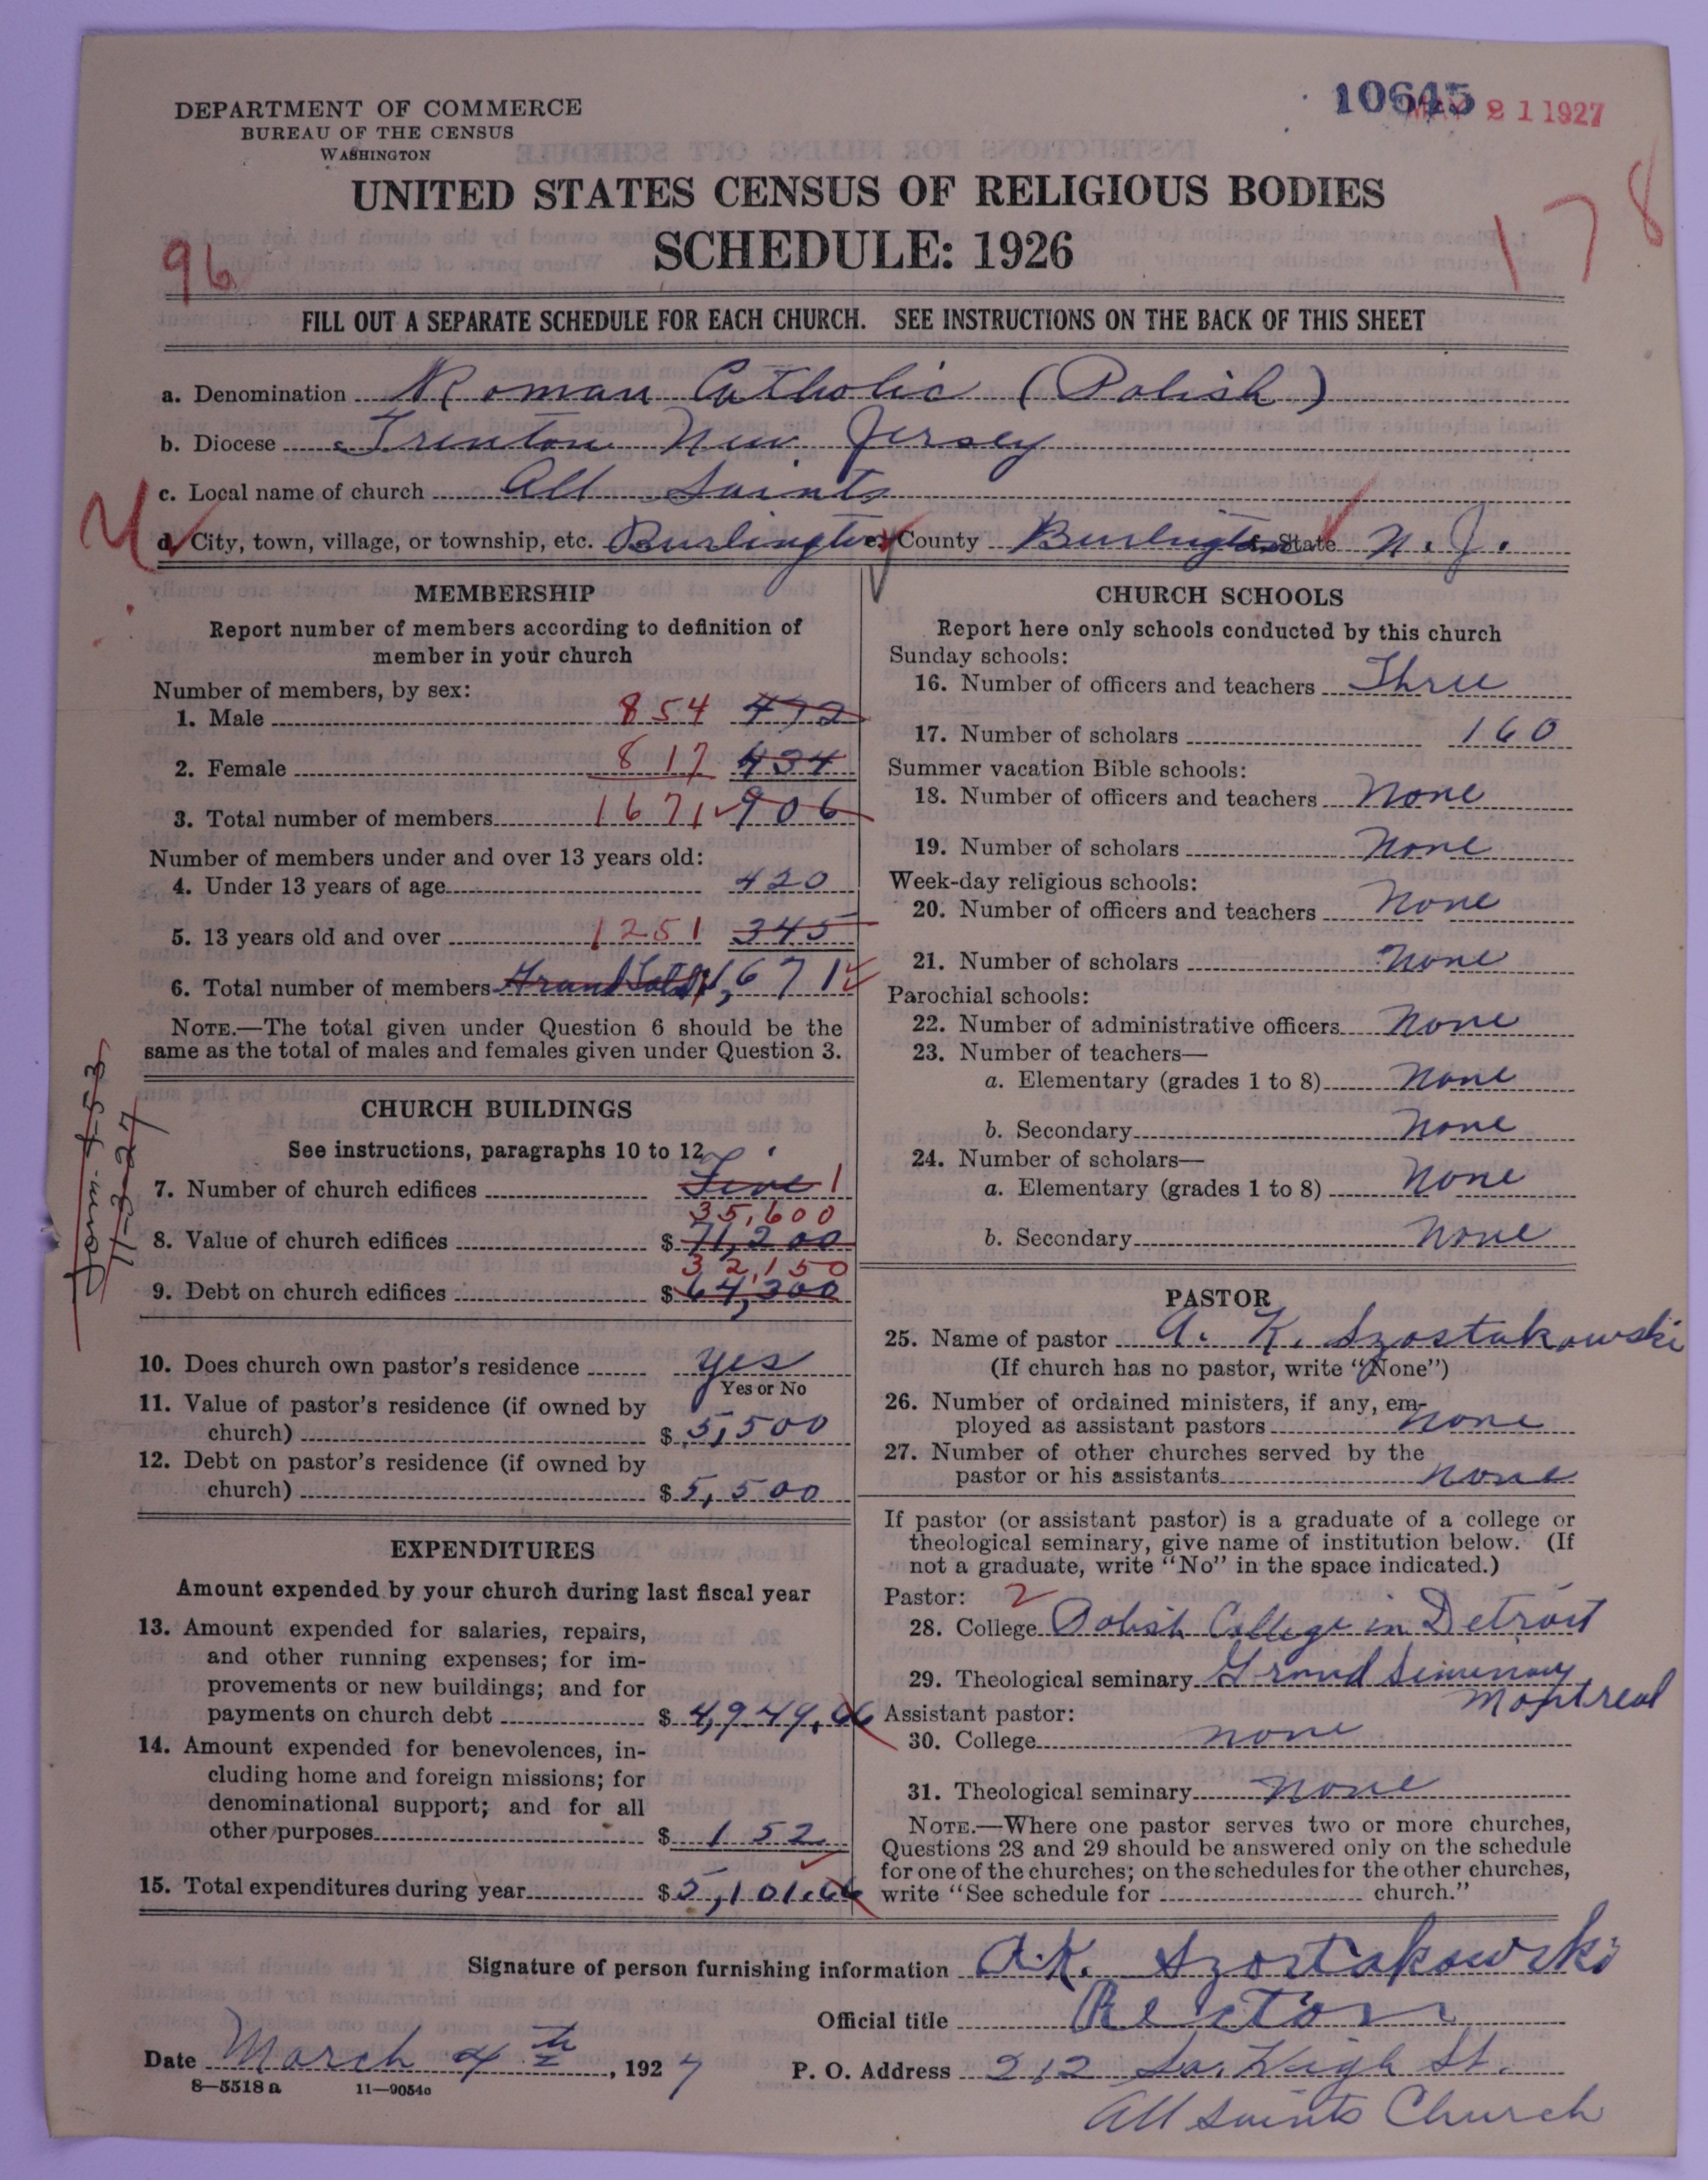 10645
MAY 21 1927
DEPARTMENT OF COMMERCE
BUREAU OF THE CENSUS
WASHINGTON
UNITED STATES CENSUS OF RELIGIOUS BODIES
SCHEDULE: 1926
96
178
FILL OUT A SEPARATE SCHEDULE FOR EACH CHURCH. SEE INSTRUCTIONS ON THE BACK OF THIS SHEET
a. Denomination Roman Catholic (Polish)
b. Diocese Trenton New Jersey
c. Local name of church All Saints
d. City, town, village, or township, etc. Burlington e. County Burlington f. State N. J.
MEMBERSHIP
Report number of members according to definition of
member in your church
Number of members, by sex:
1. Male 854 472
2. Female 817 434
3. Total number of members 1671 906
Number of members under and over 13 years old:
4. Under 13 years of age 420
5. 13 years old and over 1251 345
6. Total number of members Grand Total 1,671
NOTE.—The total given under Question 6 should be the
same as the total of males and females given under Question 3.
CHURCH BUILDINGS
See instructions, paragraphs 10 to 12
7. Number of church edifices 1
35,600
8. Value of church edifices $ 71,200
32,150
9. Debt on church edifices $ 64,300
10. Does church own pastor's residence Yes
Yes or No
11. Value of pastor's residence (if owned by
church) $ 5,500
12. Debt on pastor's residence (if owned by
church) $ 5,500
EXPENDITURES
Amount expended by your church during last fiscal year
13. Amount expended for salaries, repairs,
and other running expenses; for im-
provements or new buildings; and for
payments on church debt $ 4,949.06
14. Amount expended for benevolences, in-
cluding home and foreign missions; for
denominational support; and for all
other purposes $ 152
15. Total expenditures during year $ 5,101.06
CHURCH SCHOOLS
Report here only schools conducted by this church
Sunday schools:
16. Number of officers and teachers Three
17. Number of scholars 160
Summer vacation Bible schools:
18. Number of officers and teachers None
19. Number of scholars None
Week-day religious schools:
20. Number of officers and teachers None
21. Number of scholars None
Parochial schools:
22. Number of administrative officers None
23. Number of teachers—
a. Elementary (grades 1 to 8) None
b. Secondary None
24. Number of scholars—
a. Elementary (grades 1 to 8) None
b. Secondary None
PASTOR
25. Name of pastor A. K. Szostakowski
(If church has no pastor, write "None")
26. Number of ordained ministers, if any, em-
ployed as assistant pastors None
27. Number of other churches served by the
pastor or his assistants None
If pastor (or assistant pastor) is a graduate of a college or
theological seminary, give name of institution below. (If
not a graduate, write "No" in the space indicated.)
Pastor: 2
28. College Polish College in Detroit
29. Theological seminary Grand Seminary
Montreal
Assistant pastor:
30. College None
31. Theological seminary None
NOTE.—Where one pastor serves two or more churches,
Questions 28 and 29 should be answered only on the schedule
for one of the churches; on the schedules for the other churches,
write "See schedule for church."
Signature of person furnishing information A. K. Szostakowski
Official title Rector
Date March 4th, 1927 P. O. Address 212 So. High St.
8—5518 a 11—9054a
All Saints Church